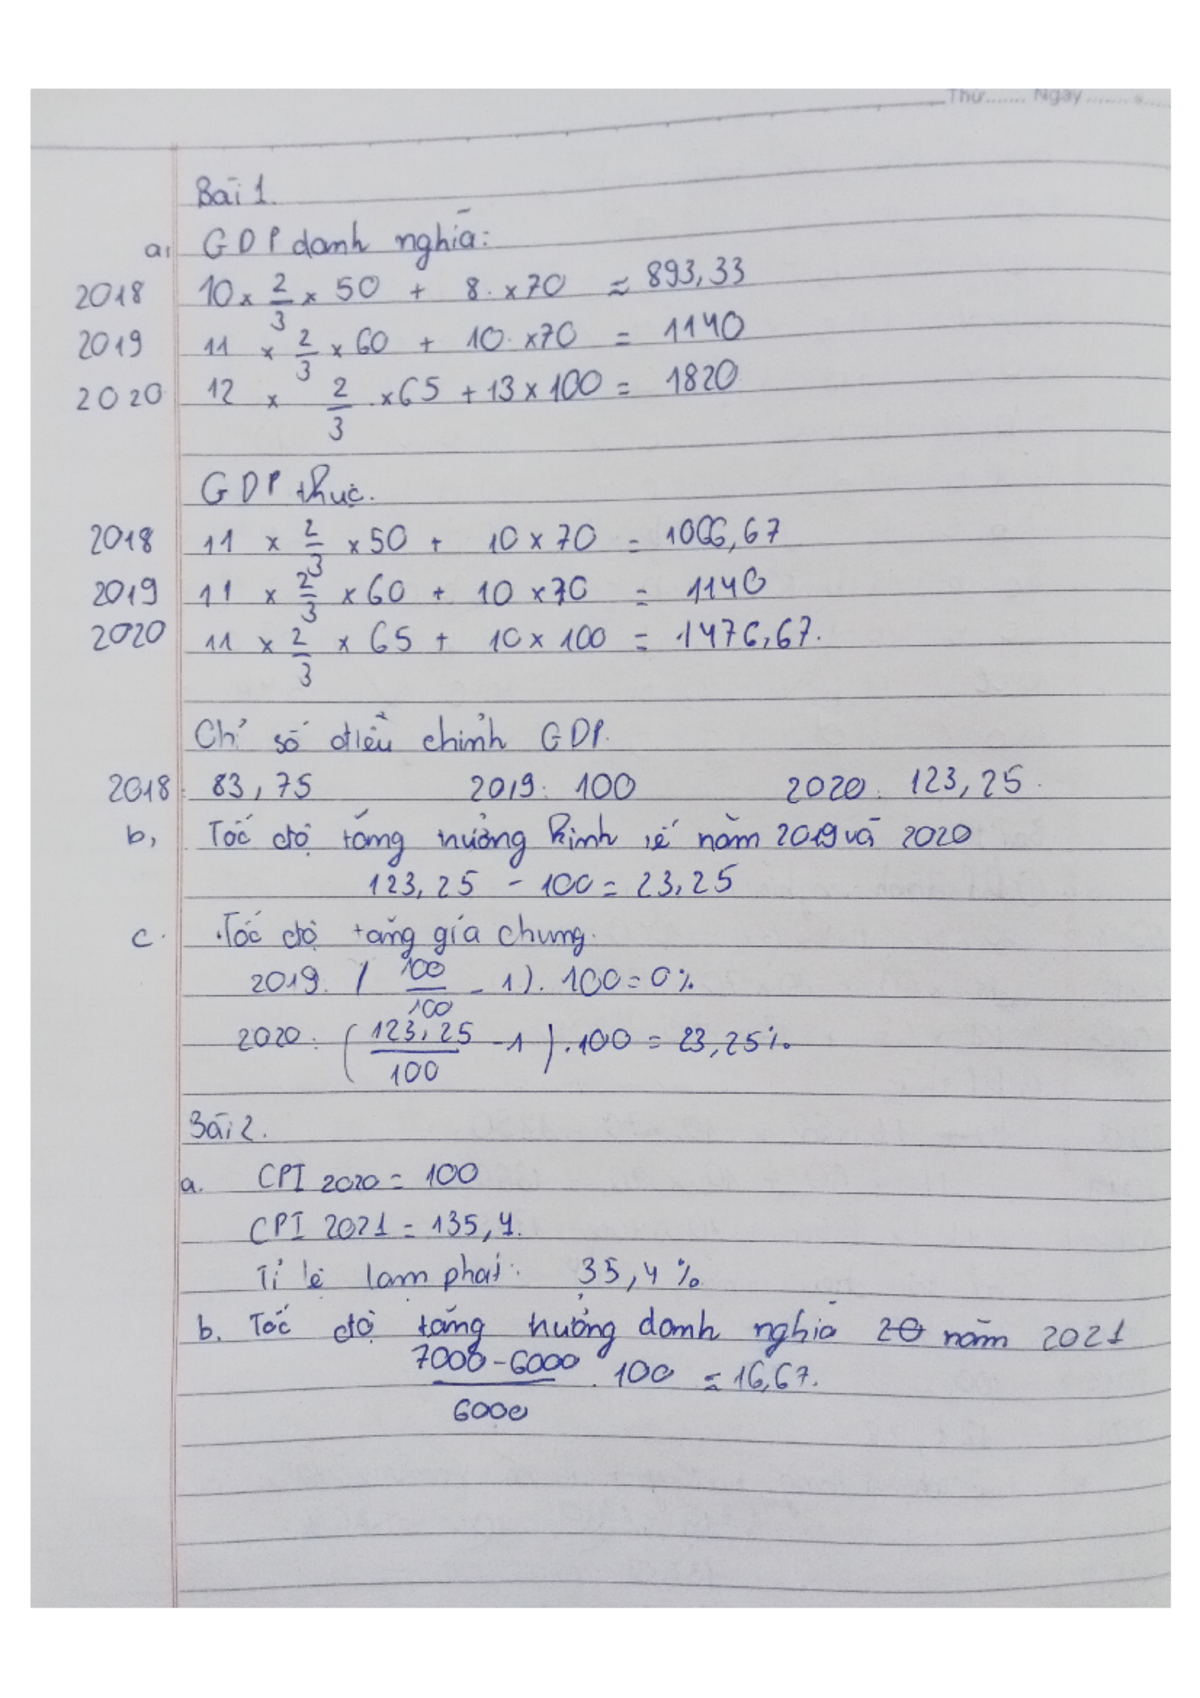 Thứ....... Ngày.......
Bài 1.
a, GDP danh nghĩa:
2018 10 x 2/3 x 50 + 8. x70 ≈ 893,33
2019 11 x 2/3 x 60 + 10. x70 = 1140
2020 12 x 2/3 .x65 + 13 x 100 = 1820
GDP thực.
2018 11 x 2/3 x 50 + 10 x 70 = 1066,67
2019 11 x 2/3 x 60 + 10 x 70 = 1140
2020 11 x 2/3 x 65 + 10 x 100 = 1476,67.
Chỉ số điều chỉnh GDP.
2018: 83,75 2019: 100 2020: 123,25.
b, Tốc độ tăng trưởng kinh tế năm 2019 và 2020
123,25 - 100 = 23,25
c. Tốc độ tăng giá chung.
2019. ( 100/100 - 1). 100 = 0%
2020: ( 123,25/100 - 1 ) .100 = 23,25%.
Bài 2.
a. CPI 2020 = 100
CPI 2021 = 135,4.
Tỉ lệ lạm phát: 35,4%.
b. Tốc độ tăng trưởng danh nghĩa 20 năm 2021
7000 - 6000/6000 . 100 = 16,67.